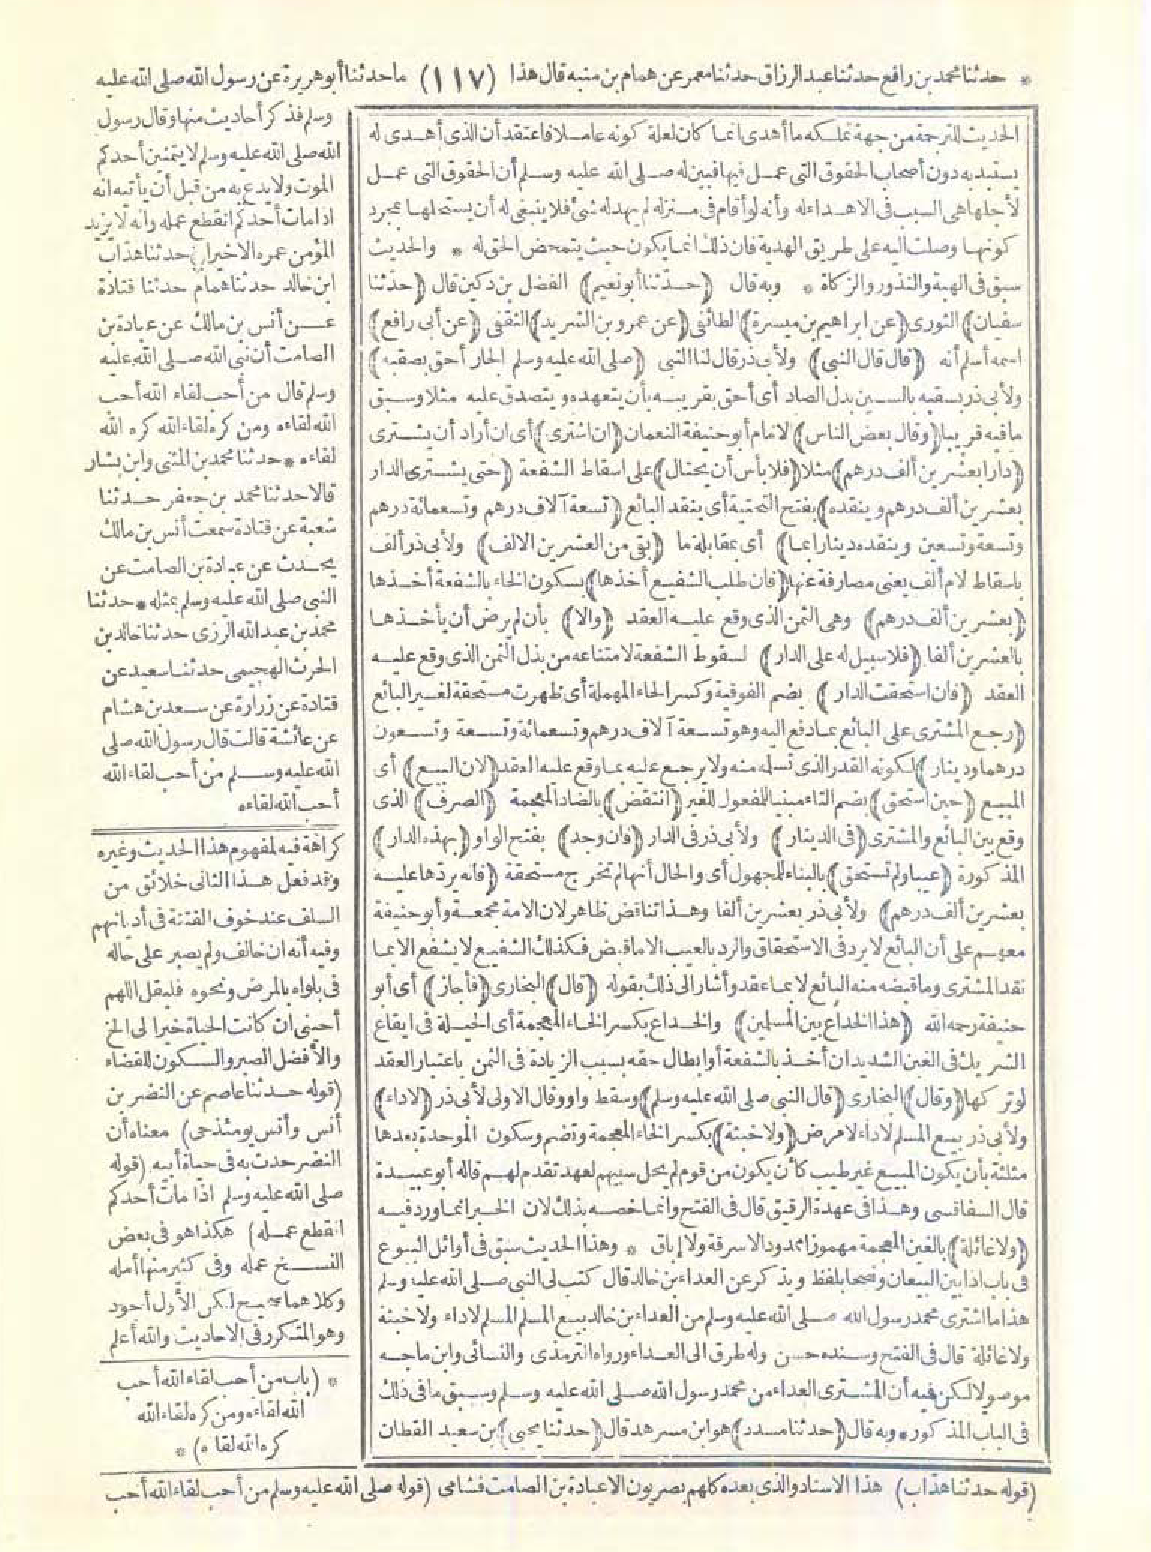 * حدثنا محمد بن رافع حدثنا عبد الرزاق حدثنا معمر عن همام بن منبه قال هذا (١١٧) ما حدثنا أبو هريرة عن رسول الله صلى الله عليه
وسلم فذكر أحاديث منها وقال رسول
الله صلى الله عليه وسلم لا يتمنين أحدكم
الموت ولا يدع به من قبل أن يأتيه انه
اذا مات أحدكم انقطع عمله وانه لا يزيد
المؤمن عمره الا خيرا * حدثنا هداب
ابن خالد حدثنا همام حدثنا قتادة
عن أنس بن مالك عن عبادة بن
الصامت أن نبى الله صلى الله عليه
وسلم قال من أحب لقاء الله أحب
الله لقاءه ومن كره لقاء الله كره الله
لقاءه * حدثنا محمد بن المثنى وابن بشار
قالا حدثنا محمد بن جعفر حدثنا
شعبة عن قتادة سمعت أنس بن مالك
يحدث عن عبادة بن الصامت عن
النبى صلى الله عليه وسلم بمثله * حدثنا
محمد بن عبد الله الرزى حدثنا خالد بن
الحرث الهجيمى حدثنا سعيد عن
قتادة عن زرارة عن سعد بن هشام
عن عائشة قالت قال رسول الله صلى
الله عليه وسلم من أحب لقاء الله
أحب الله لقاءه
كراهة فيه لمفهوم هذا الحديث وغيره
وقد فعل هذا الثانى خلائق من
السلف عند خوف الفتنة فى أديانهم
وفيه أنه ان خالف ولم يصبر على حاله
فى بلواه بالمرض ونحوه فليقل اللهم
أحينى ان كانت الحياة خيرا لى الخ
والأفضل الصبر والسكون للقضاء
(قوله حدثنا عاصم عن النضر بن
أنس وأنس يومئذ حى) معناه أن
النضر حدث به فى حياة أبيه (قوله
صلى الله عليه وسلم اذا مات أحدكم
انقطع عمله) هكذا هو فى بعض
النسخ عمله وفى كثير منها أمله
وكلاهما صحيح لكن الأول أجود
وهو المتكرر فى الاحاديث والله أعلم
* (باب من أحب لقاء الله أحب
الله لقاءه ومن كره لقاء الله
كره الله لقاءه) *
الحديث للترجمة من جهة تملكه ما أهدى انما كان لعلة كونه عاملا فاعتقد أن الذى أهدى له
يستبد به دون أصحاب الحقوق التى عمل فيها فبين له صلى الله عليه وسلم أن الحقوق التى عمل
لأجلها هى السبب فى الاهداء له وأنه لو أقام فى منزله لم يهد له شئ فلا ينبغى له أن يستحلها بمجرد
كونها وصلت اليه على طريق الهدية فان ذلك انما يكون حيث يتمحض الحق له * والحديث
سبق فى الهبة والنذور والزكاة * وبه قال (حدثنا أبو نعيم) الفضل بن دكين قال (حدثنا
سفيان) الثورى (عن ابراهيم بن ميسرة) الطائفى (عن عمرو بن الشريد) الثقفى (عن أبى رافع)
اسمه أسلم أنه (قال قال النبى) ولأبى ذر قال لنا النبى (صلى الله عليه وسلم الجار أحق بصقبه)
ولأبى ذر بسقبه بالسين بدل الصاد أى أحق بقريبه بأن يتعهده ويتصدق عليه مثلا وسبق
ما فيه قريبا (وقال بعض الناس) الامام أبو حنيفة النعمان (ان اشترى) أى ان أراد أن يشترى
(دارا بعشرين ألف درهم) مثلا (فلا بأس أن يحتال) على اسقاط الشفعة (حتى يشترى الدار
بعشرين ألف درهم وينقده) بفتح التحتية أى ينقد البائع (تسعة آلاف درهم وتسعمائة درهم
وتسعة وتسعين وينقده دينارا بما) أى بمقابلة ما (بقى من العشرين الالف) ولأبى ذر ألف
باسقاط لام ألف يعنى مصارفة عنها (فان طلب الشفيع أخذها) بسكون الخاء بالشفعة أخذها
(بعشرين ألف درهم) وهى الثمن الذى وقع عليه العقد (والا) بأن لم يرض أن يأخذها
بالعشرين ألفا (فلا سبيل له على الدار) لسقوط الشفعة لامتناعه من بذل الثمن الذى وقع عليه
العقد (فان استحقت الدار) بضم الفوقية وكسر الحاء المهملة أى ظهرت مستحقة لغير البائع
(رجع المشترى على البائع بما دفع اليه وهو تسعة آلاف درهم وتسعمائة وتسعة وتسعون
درهما ودينار) لكونه القدر الذى تسلمه منه ولا يرجع عليه بما وقع عليه العقد (لان البيع) أى
المبيع (حين استحق) بضم التاء مبنيا للمفعول للغير (انتقض) بالضاد المعجمة (الصرف) الذى
وقع بين البائع والمشترى (فى الدينار) ولأبى ذر فى الدار (فان وجد) بفتح الواو (بهذه الدار)
المذكورة (عيبا ولم تستحق) بالبناء للمجهول أى والحال أنها لم تخرج مستحقة (فانه يردها عليه
بعشرين ألف درهم) ولأبى ذر بعشرين ألفا وهذا تناقض ظاهر لان الامة مجمعة وأبو حنيفة
معهم على أن البائع لا يرد فى الاستحقاق والرد بالعيب الا ما قبض فكذلك الشفيع لا يشفع الا بما
نقد المشترى وما قبضه منه البائع لا بما عقد وأشار الى ذلك بقوله (قال) البخارى (فأجاز) أى أبو
حنيفة رحمه الله (هذا الخداع بين المسلمين) والخداع بكسر الخاء المعجمة أى الحيلة فى ايقاع
الشريك فى الغبن الشديد ان أخذ بالشفعة أو ابطال حقه بسبب الزيادة فى الثمن باعتبار العقد
لو تركها (وقال) البخارى (قال النبى صلى الله عليه وسلم) وسقط واو وقال الاولى لأبى ذر (لا داء)
ولأبى ذر بيع المسلم لا داء لا مرض (ولا خبثة) بكسر الخاء المعجمة وتضم وسكون الموحدة بعدها
مثلثة بأن يكون المبيع غير طيب كأن يكون من قوم لم يحل سبيهم لعهد تقدم لهم قاله أبو عبيدة
قال السفاقسى وهذا فى عهدة الرقيق قال فى الفتح وانما خصه بذلك لان الخبر انما ورد فيه
(ولا غائلة) بالغين المعجمة مهموزا ممدودا لا سرقة ولا إباق * وهذا الحديث سبق فى أوائل البيوع
فى باب اذا بين البيعان ونصحا بلفظ ويذكر عن العداء بن خالد قال كتب لى النبى صلى الله عليه وسلم
هذا ما اشترى محمد رسول الله صلى الله عليه وسلم من العداء بن خالد بيع المسلم المسلم لا داء ولا خبثة
ولا غائلة قال فى الفتح وسنده حسن وله طرق الى العداء ورواه الترمذى والنسائى وابن ماجه
موصولا لكن فيه أن المشترى العداء من محمد رسول الله صلى الله عليه وسلم وسبق ما فى ذلك
فى الباب المذكور * وبه قال (حدثنا مسدد) هو ابن مسرهد قال (حدثنا يحيى) بن سعيد القطان
(قوله حدثنا هداب) هذا الاسناد والذى بعده كلهم بصريون الا عبادة بن الصامت فشامى (قوله صلى الله عليه وسلم من أحب لقاء الله أحب